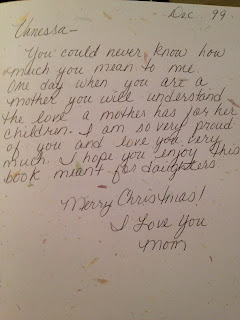 Dec. 99
Vanessa-
You could never know how
much you mean to me.
One day when you are a
mother you will understand
the love a mother has for her
children. I am so very proud
of you and love you very
much. I hope you enjoy this
book meant for daughters.
Merry Christmas!
I Love You
Mom